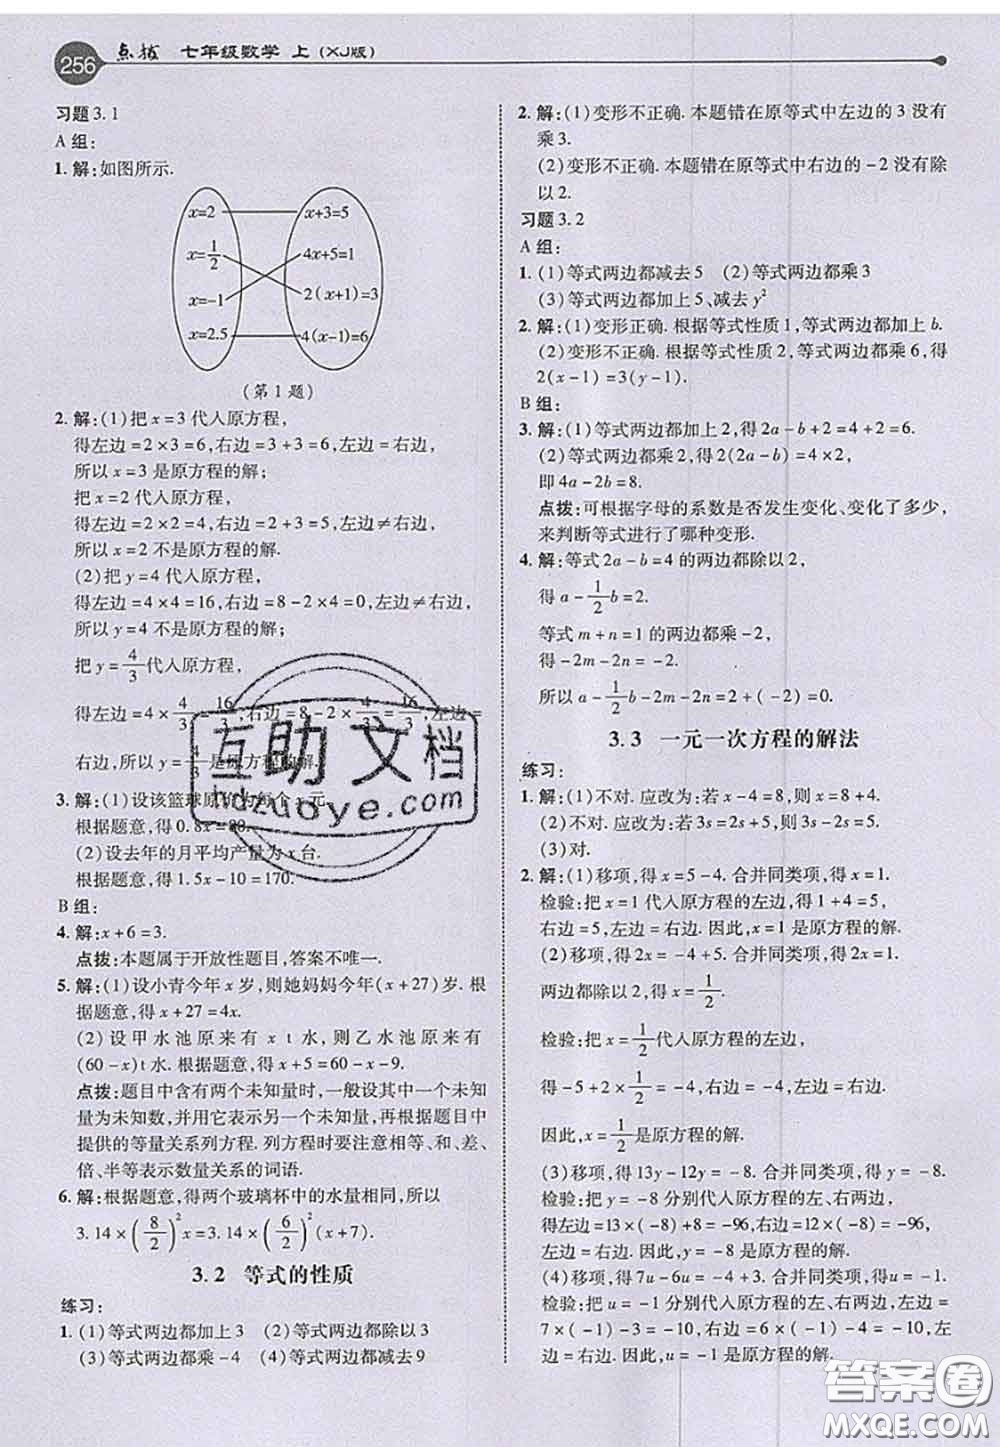 256 点拨 七年级数学 上(XJ版)
习题3.1
A组:
1. 解:如图所示.
x=2 x+3=5
x=1/2 4x+5=1
x=-1 2(x+1)=3
x=2.5 4(x-1)=6
(第1题)
2. 解:(1)把x=3代入原方程,
得左边=2×3=6,右边=3+3=6,左边=右边,
所以x=3是原方程的解;
把x=2代入原方程,
得左边=2×2=4,右边=2+3=5,左边≠右边,
所以x=2不是原方程的解.
(2)把y=4代入原方程,
得左边=4×4=16,右边=8-2×4=0,左边≠右边,
所以y=4不是原方程的解;
把y=4/3代入原方程,
得左边=4×4/3=16/3,右边=8-2×4/3=16/3,左边=
右边,所以y=4/3是原方程的解.
3. 解:(1)设该篮球原价为每个x元.
根据题意,得0.8x=88.
(2)设去年的月平均产量为x台.
根据题意,得1.5x-10=170.
B组:
4. 解:x+6=3.
点拨:本题属于开放性题目,答案不唯一.
5. 解:(1)设小青今年x岁,则她妈妈今年(x+27)岁.根
据题意,得x+27=4x.
(2)设甲水池原来有x t水,则乙水池原来有
(60-x)t水.根据题意,得x+5=60-x-9.
点拨:题目中含有两个未知量时,一般设其中一个未知
量为未知数,并用它表示另一个未知量,再根据题目中
提供的等量关系列方程.列方程时要注意相等、和、差、
倍、半等表示数量关系的词语.
6. 解:根据题意,得两个玻璃杯中的水量相同,所以
3.14×(8/2)²x=3.14×(6/2)²(x+7).
3.2 等式的性质
练习:
1. (1)等式两边都加上3 (2)等式两边都除以3
(3)等式两边都乘-4 (4)等式两边都减去9
2. 解:(1)变形不正确.本题错在原等式中左边的3没有
乘3.
(2)变形不正确.本题错在原等式中右边的-2没有除
以2.
习题3.2
A组:
1. (1)等式两边都减去5 (2)等式两边都乘3
(3)等式两边都加上5、减去y²
2. 解:(1)变形正确.根据等式性质1,等式两边都加上b.
(2)变形正确.根据等式性质2,等式两边都乘6,得
2(x-1)=3(y-1).
B组:
3. 解:(1)等式两边都加上2,得2a-b+2=4+2=6.
(2)等式两边都乘2,得2(2a-b)=4×2,
即4a-2b=8.
点拨:可根据字母的系数是否发生变化、变化了多少,
来判断等式进行了哪种变形.
4. 解:等式2a-b=4的两边都除以2,
得a-1/2b=2.
等式m+n=1的两边都乘-2,
得-2m-2n=-2.
所以a-1/2b-2m-2n=2+(-2)=0.
3.3 一元一次方程的解法
练习:
1. 解:(1)不对.应改为:若x-4=8,则x=8+4.
(2)不对.应改为:若3s=2s+5,则3s-2s=5.
(3)对.
2. 解:(1)移项,得x=5-4.合并同类项,得x=1.
检验:把x=1代入原方程的左边,得1+4=5,
右边=5,左边=右边.因此,x=1是原方程的解.
(2)移项,得2x=-4+5.合并同类项,得2x=1.
两边都除以2,得x=1/2.
检验:把x=1/2代入原方程的左边,
得-5+2×1/2=-4,右边=-4,左边=右边.
因此,x=1/2是原方程的解.
(3)移项,得13y-12y=-8.合并同类项,得y=-8.
检验:把y=-8分别代入原方程的左、右两边,
得左边=13×(-8)+8=-96,右边=12×(-8)=-96,
左边=右边.因此,y=-8是原方程的解.
(4)移项,得7u-6u=-4+3.合并同类项,得u=-1.
检验:把u=-1分别代入原方程的左、右两边,得左边=
7×(-1)-3=-10,右边=6×(-1)-4=-10,左
边=右边.因此,u=-1是原方程的解.
互助文档
hdzuoye.com
答案圈
MXQE.COM